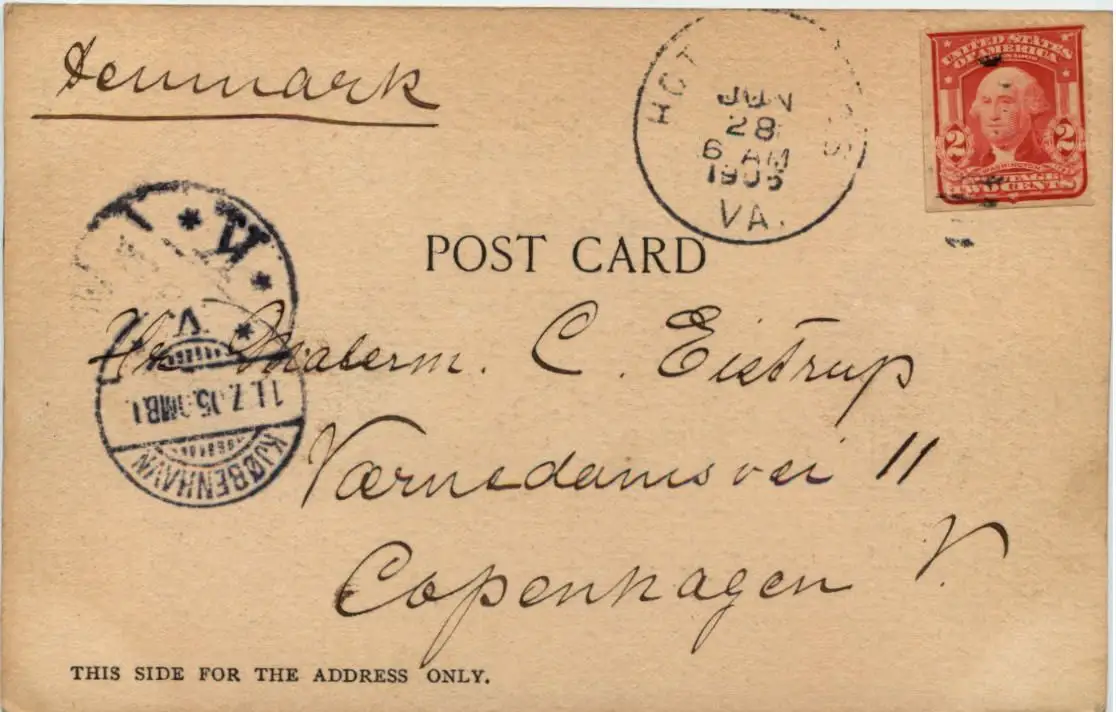 Denmark
HOT
JUN
28
6 AM
1905
VA.
UNITED STATES
OF AMERICA
2 2
WASHINGTON
TWO CENTS
POST CARD
K
V.
11.7.05. MB.1
KJØBENHAVN
Hr. Malerm. C. Eistrup
Værnedamsvei 11
Copenhagen V.
THIS SIDE FOR THE ADDRESS ONLY.